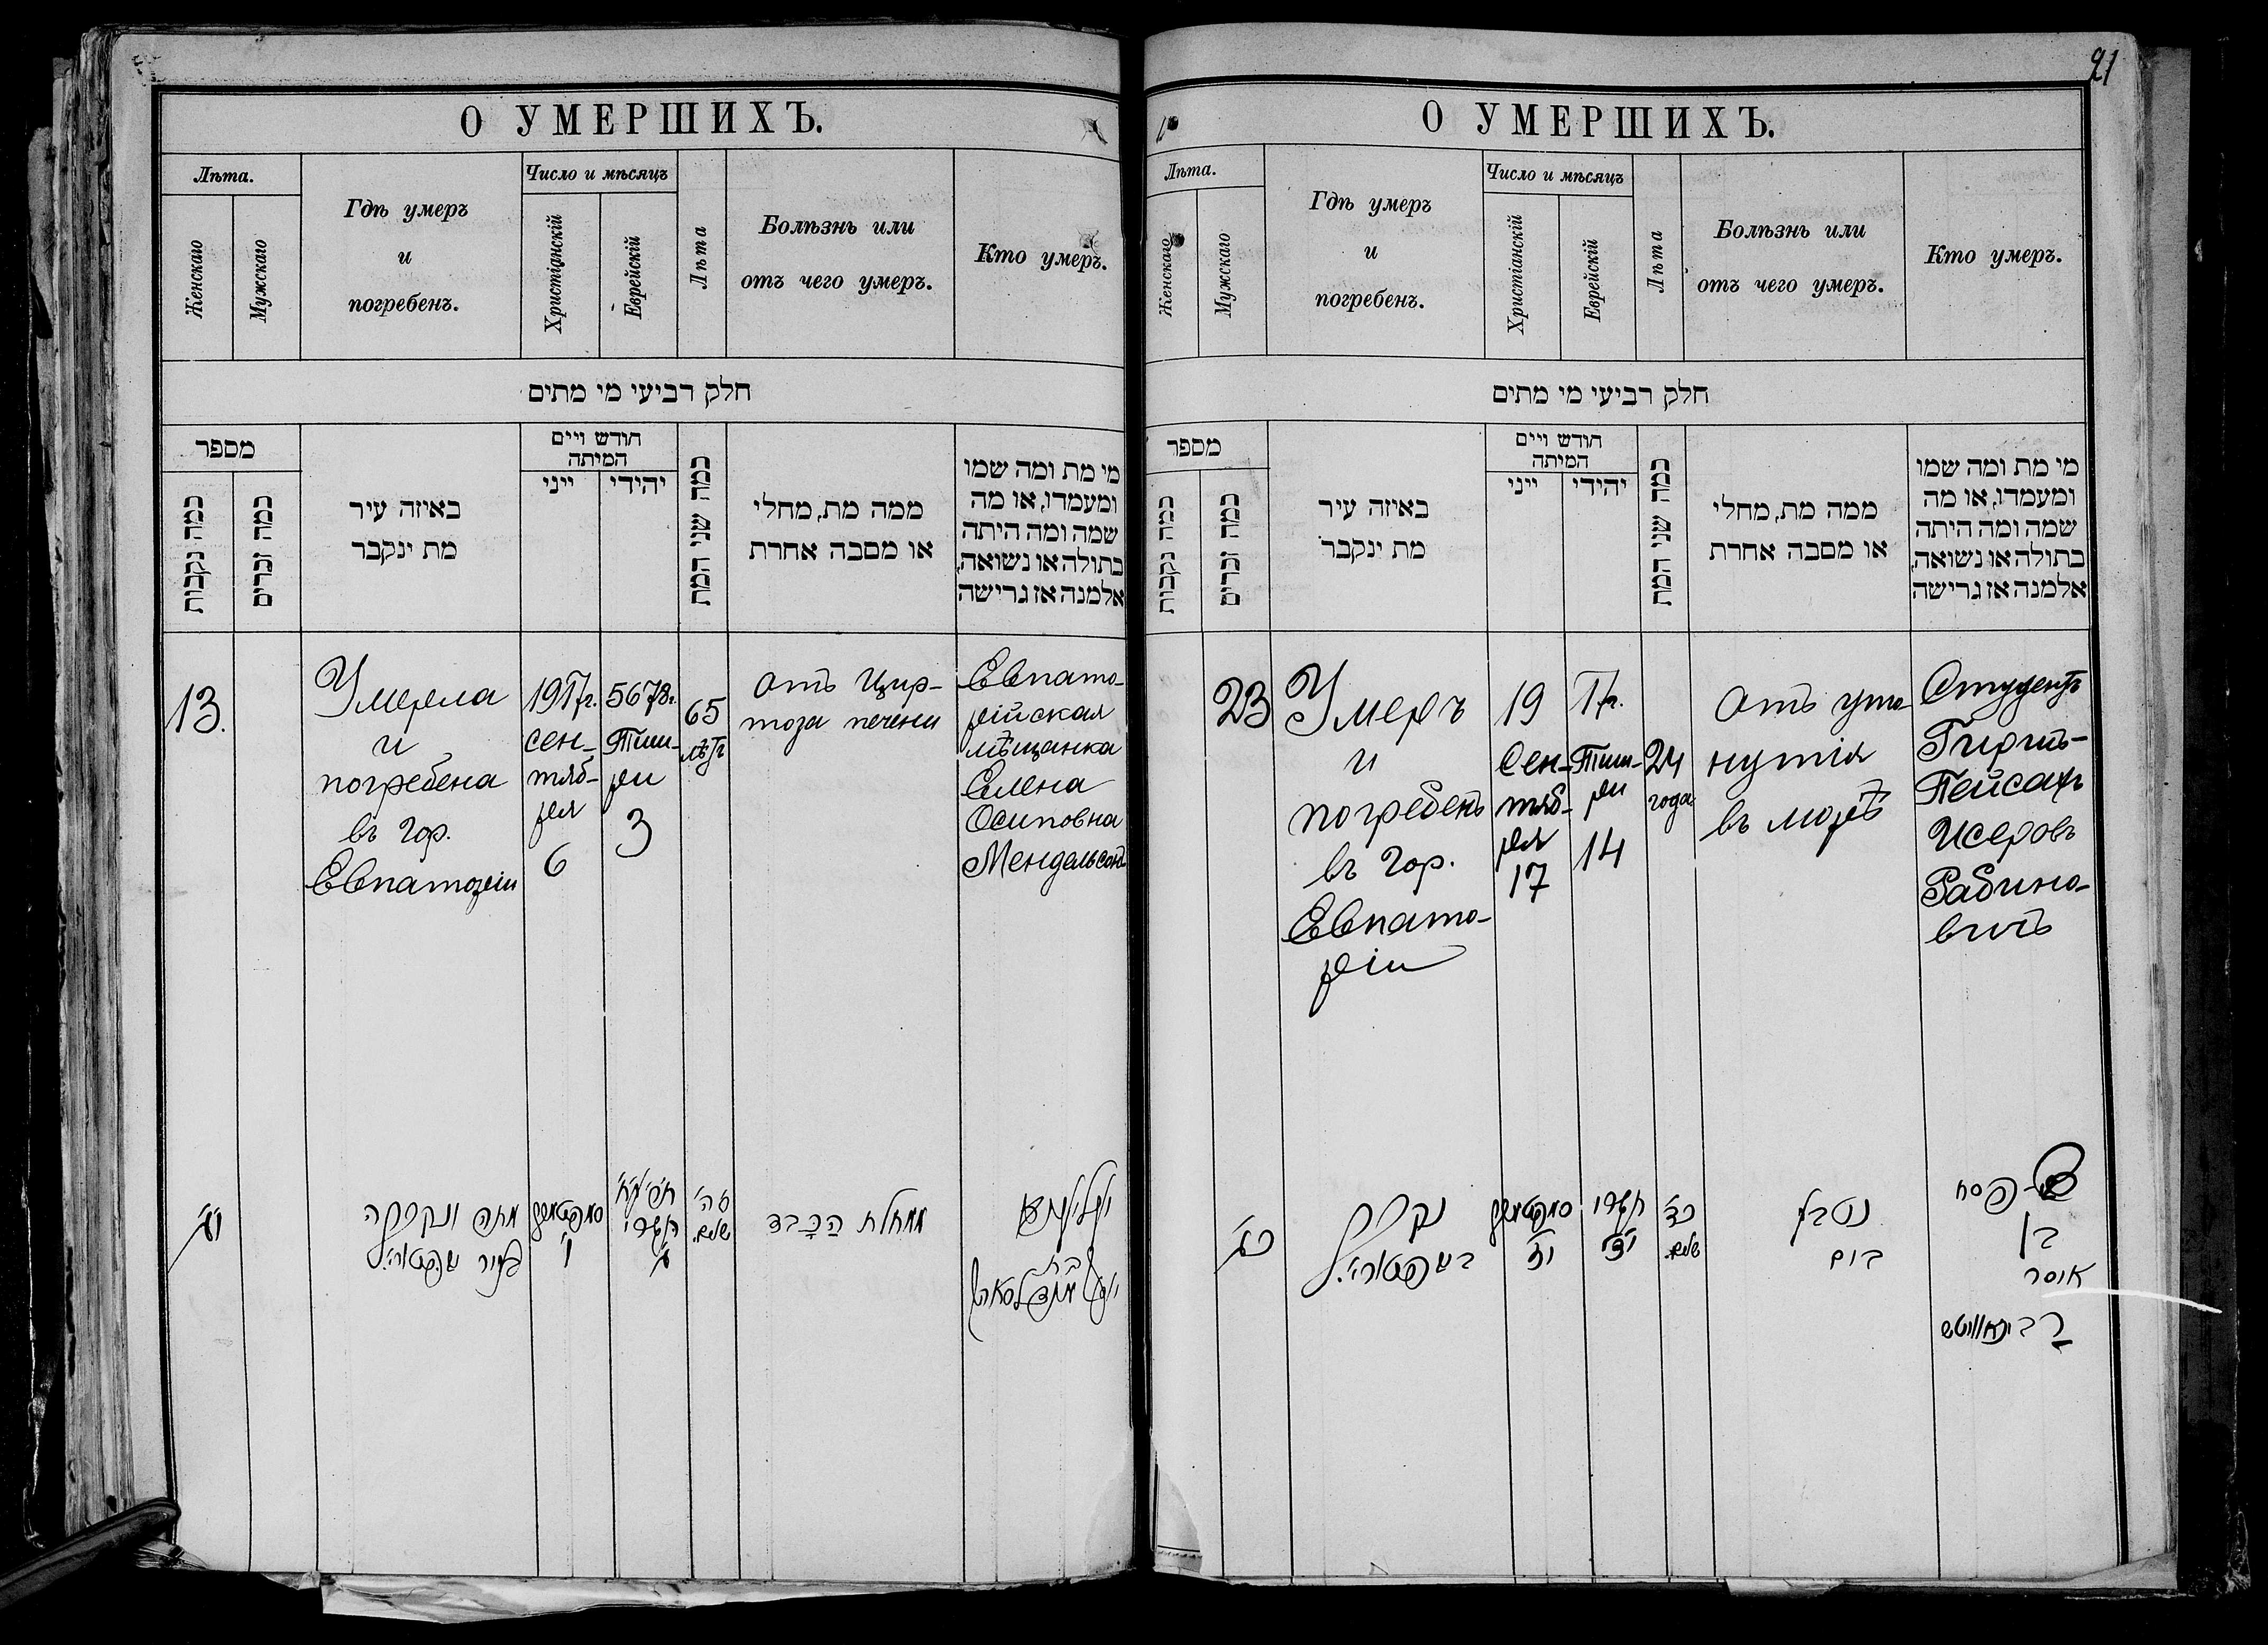 О УМЕРШИХЪ.
Лѣта.
Женскаго
Мужскаго
Гдѣ умеръ
и
погребенъ.
Число и мѣсяцъ
Христіанскій
Еврейскій
Лѣта
Болѣзнь или
отъ чего умеръ.
Кто умеръ.
חלק רביעי מי מתים
מספר
כמה נקבות
כמה זכרים
באיזה עיר
מת ינקבר
חודש ויים
המיתה
ייני
יהידי
כמה שני המת
ממה מת, מחלי
או מסבה אחרת
מי מת ומה שמו
ומעמדו, או מה
שמה ומה היתה
בתולה או נשואה,
אלמנה אז גרישה
13.
Умерла
и
погребена
въ гор.
Евпаторіи
1917г.
сен-
тяб-
ря
6
5678г.
Тиш-
ри
3
65
лѣтъ
отъ цир-
роза печени
Евпато-
рійская
мѣщанка
Елена
Осиповна
Мендельсонъ
יג׳
מתה ונקברה
בעיר
סעפטעמבר
ו׳
תשרי
ג׳
ס״ה
שנים
ממחלת הַכָּבֵד
בת
21
О УМЕРШИХЪ.
Лѣта.
Женскаго
Мужскаго
Гдѣ умеръ
и
погребенъ.
Число и мѣсяцъ
Христіанскій
Еврейскій
Лѣта
Болѣзнь или
отъ чего умеръ.
Кто умеръ.
חלק רביעי מי מתים
מספר
כמה נקבות
כמה זכרים
באיזה עיר
מת ינקבר
חודש ויים
המיתה
ייני
יהידי
כמה שני המת
ממה מת, מחלי
או מסבה אחרת
מי מת ומה שמו
ומעמדו, או מה
שמה ומה היתה
בתולה או נשואה,
אלמנה אז גרישה
23
Умеръ
и
погребенъ
въ гор.
Евпато-
ріи
19
Сен-
тяб-
ря
17
17г.
Тиш-
ри
14
24
года
отъ уто-
нутія
въ морѣ
Студентъ
Гиршъ-
Пейсахъ
Исеровъ
Рабино-
вичъ
כג׳
נקבר
סעפטעמבר
יז׳
תשרי
י״ד
כד׳
שנים
נטבע
בים
פסח
בן
איסר
רבינאוויטש